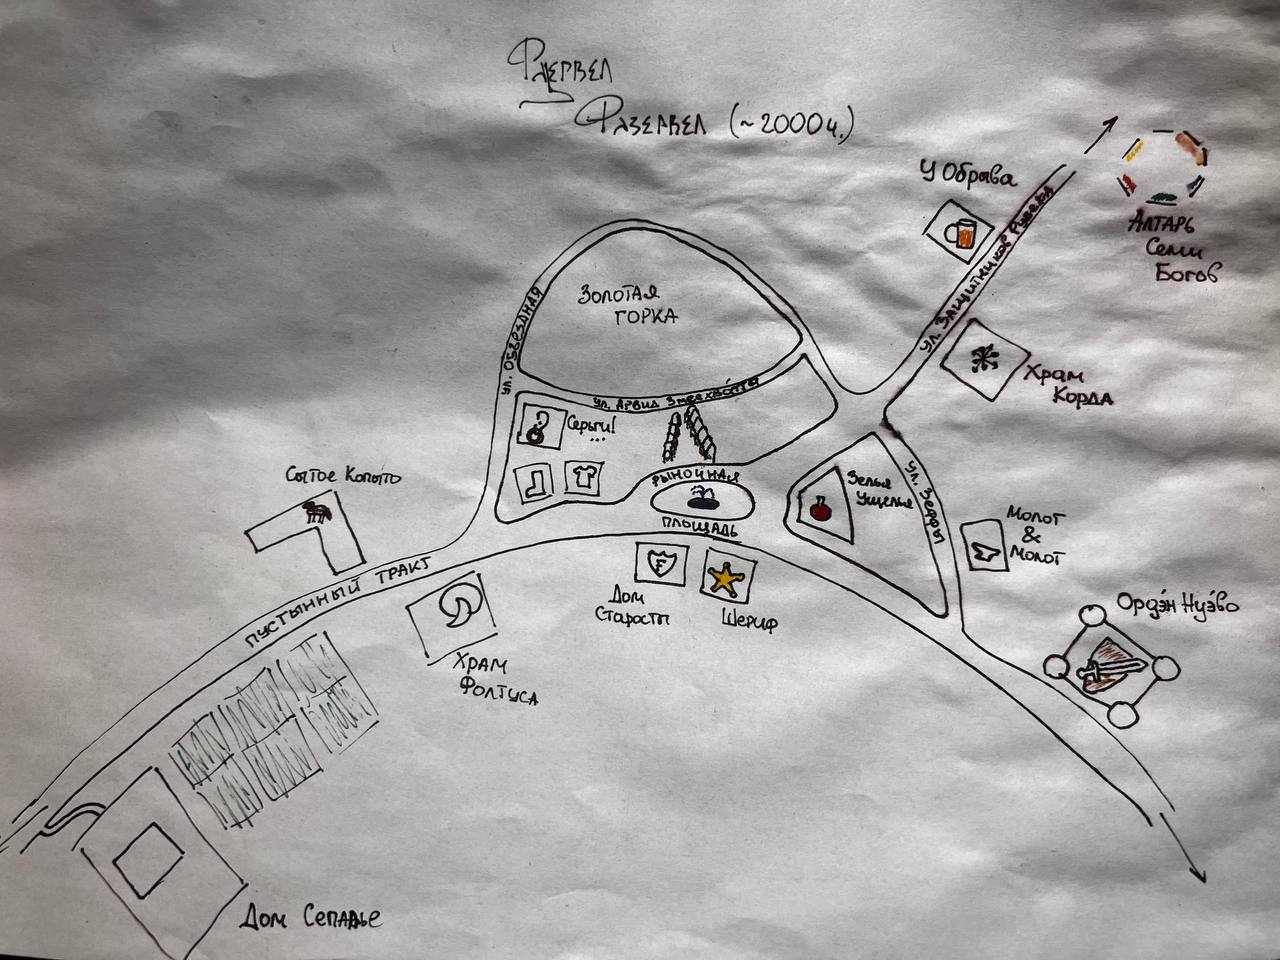 Фазервел (~2000ч.)
У Обрыва
Алтарь
Семи
Богов
ул. Защитников Рувека
Золотая
горка
ул. Объездная
ул. Арвид Змеехвосты
Храм
Корда
Серьги!
...
Сытое Копыто
Рыночная
площадь
Зелья
Ущелья
Молот
&
Молот
Пустынный тракт
F
Дом
Старосты
Шериф
Ордэн Нуэво
Храм
Фолтуса
Дом Сепадье